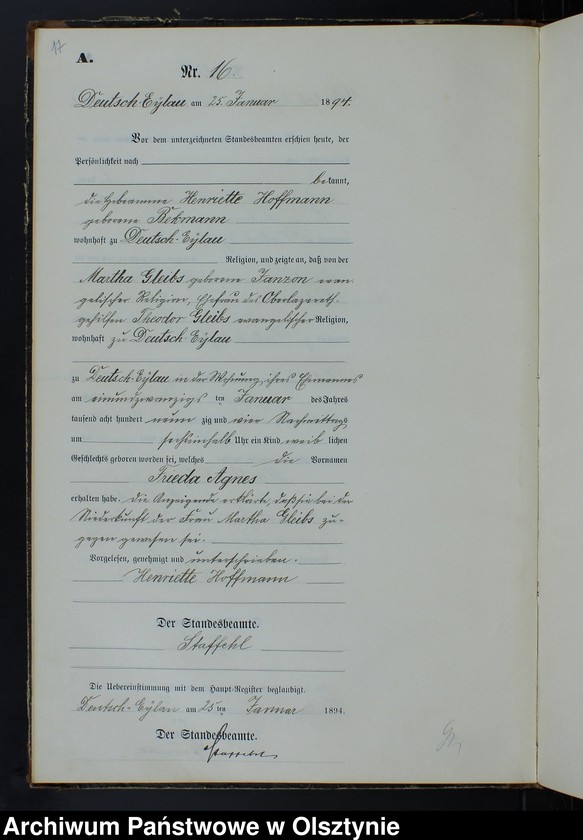 17
A.
Nr. 16.
Deutsch-Eylau am 25. Januar 1894.
Vor dem unterzeichneten Standesbeamten erschien heute, der
Persönlichkeit nach
bekannt,
die Hebeamme Henriette Hoffmann
geborene Bekmann
wohnhaft zu Deutsch-Eylau
Religion, und zeigte an, daß von der
Martha Gleibs geborene Janzon evan-
gelischer Religion, Ehefrau des Oberlazareth-
gehilfen Theodor Gleibs evangelischer Religion,
wohnhaft zu Deutsch-Eylau
zu Deutsch-Eylau in der Wohnung ihres Ehemannes
am einundzwanzigsten Januar des Jahres
tausend acht hundert neunzig und vier Nachmittags
um sechseinhalb Uhr ein Kind weiblichen
Geschlechts geboren worden sei, welches die Vornamen
Frieda Agnes
erhalten habe. Die Anzeigende erklärte, daß sie bei der
Niederkunft der Frau Martha Gleibs zu-
gegen gewesen sei.
Vorgelesen, genehmigt und unterschrieben.
Henriette Hoffmann
Der Standesbeamte.
Staffehl
Die Uebereinstimmung mit dem Haupt-Register beglaubigt.
Deutsch-Eylau am 25ten Januar 1894.
Der Standesbeamte.
Staffehl
Archiwum Państwowe w Olsztynie